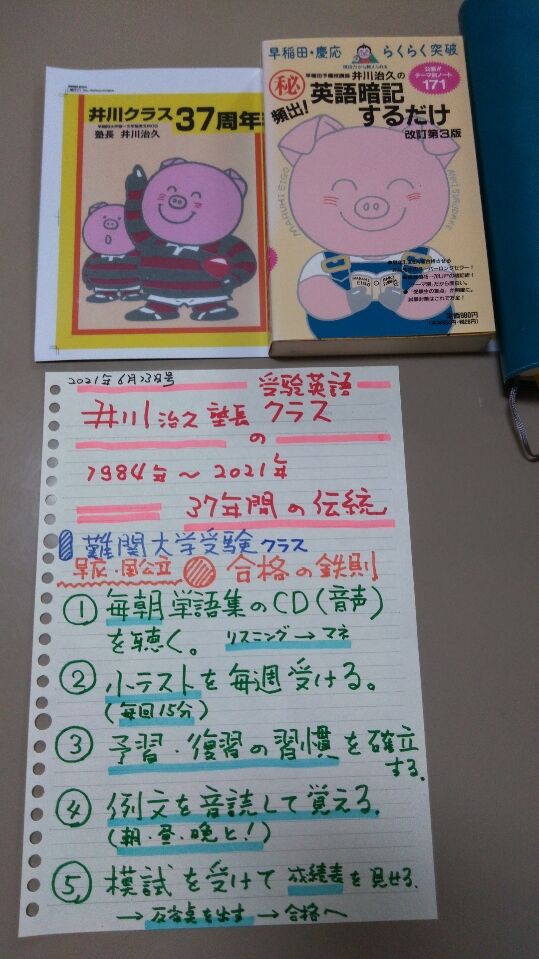 井川クラス
37周年
塾長 井川治久
早稲田・慶応
らくらく突破
早稲田予備校講師 井川治久の
公募!! テーマ別ノート 171
㊙
頻出!
英語暗記
するだけ
改訂第3版
MARUMI EIGO
ANKI SURUDAKE
MARUMI EIGO
ANKI SURUDAKE
試験対策はこれで万全!
定価880円
2021年6月23日号
受験英語
井川治久塾長クラス
の
1984年〜2021年
37年間の伝統
難関大学受験クラス
早慶・国公立 合格の鉄則
① 毎朝単語集のCD(音声)
を聴く。 リスニング→マネ
② 小テストを毎週受ける。
(毎回15分)
③ 予習・復習の習慣を確立
する。
④ 例文を音読して覚える。
(朝・昼・晩と!)
⑤ 模試を受けて成績表を見せる。
→反省点を出す→合格へ